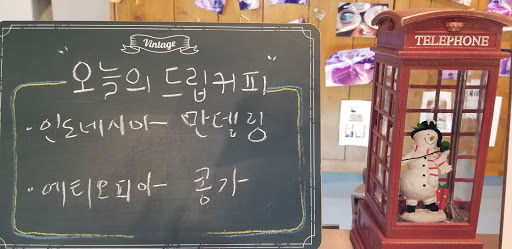 Vintage
"오늘의 드립커피"
· 인도네시아 만델링
· 에티오피아 콩가
TELEPHONE